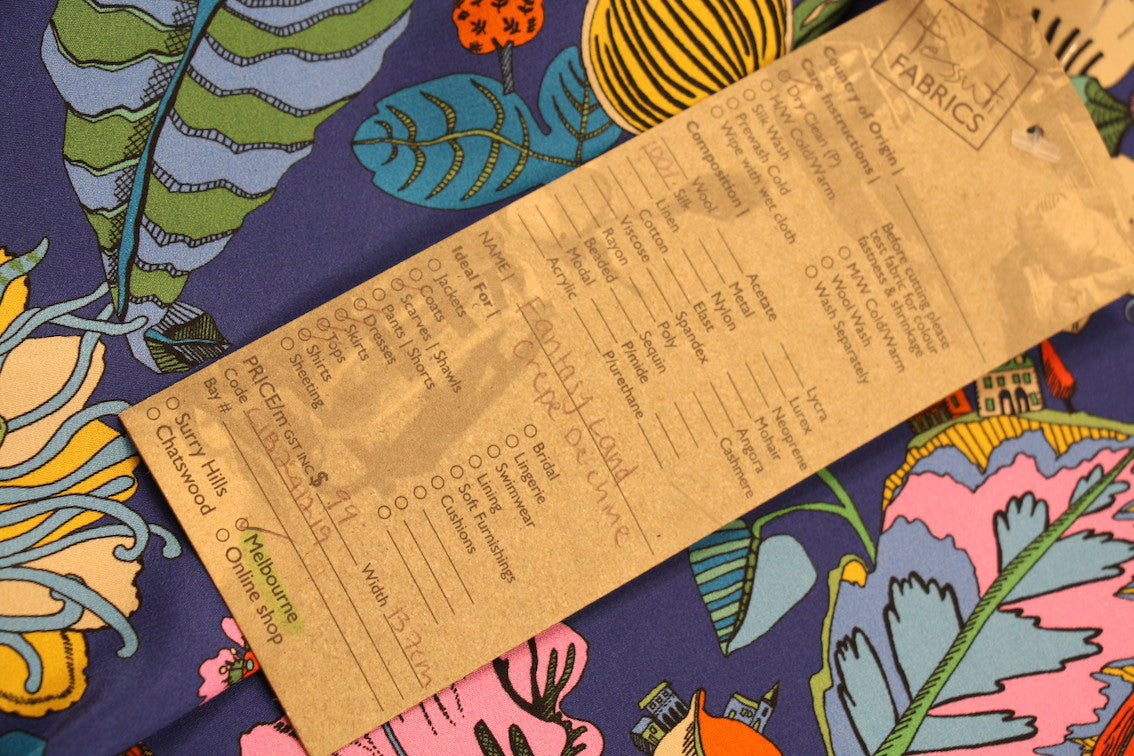 Tessuti
FABRICS
Country of Origin |
Care Instructions |
Dry Clean (P)
H/W Cold/Warm
Silk Wash
Prewash Cold
Wipe with wer cloth
Before cutting please
test fabric for colour
fastness & shrinkage
M/W Cold/Warm
Wool Wash
Wash Separately
Composition |
Wool
100% Silk
Linen
Cotton
Viscose
Rayon
Beaded
Modal
Acrylic
Acetate
Metal
Nylon
Elast
Spandex
Poly
Sequin
P/mide
Purethane
Lycra
Lurex
Neoprene
Mohair
Angora
Cashmere
NAME | Fantasy Land
Crepe De Chine
Ideal For |
Jackets
Coats
Scarves | Shawls
Pants | Shorts
Dresses
Skirts
Tops
Shirts
Sheeting
Bridal
Lingerie
Swimwear
Lining
Soft Furnishings
Cushions
PRICE/m GST INC $ 99
Code
Width 137cm
Bay #
Surry Hills
Chatswood
Melbourne
Online shop